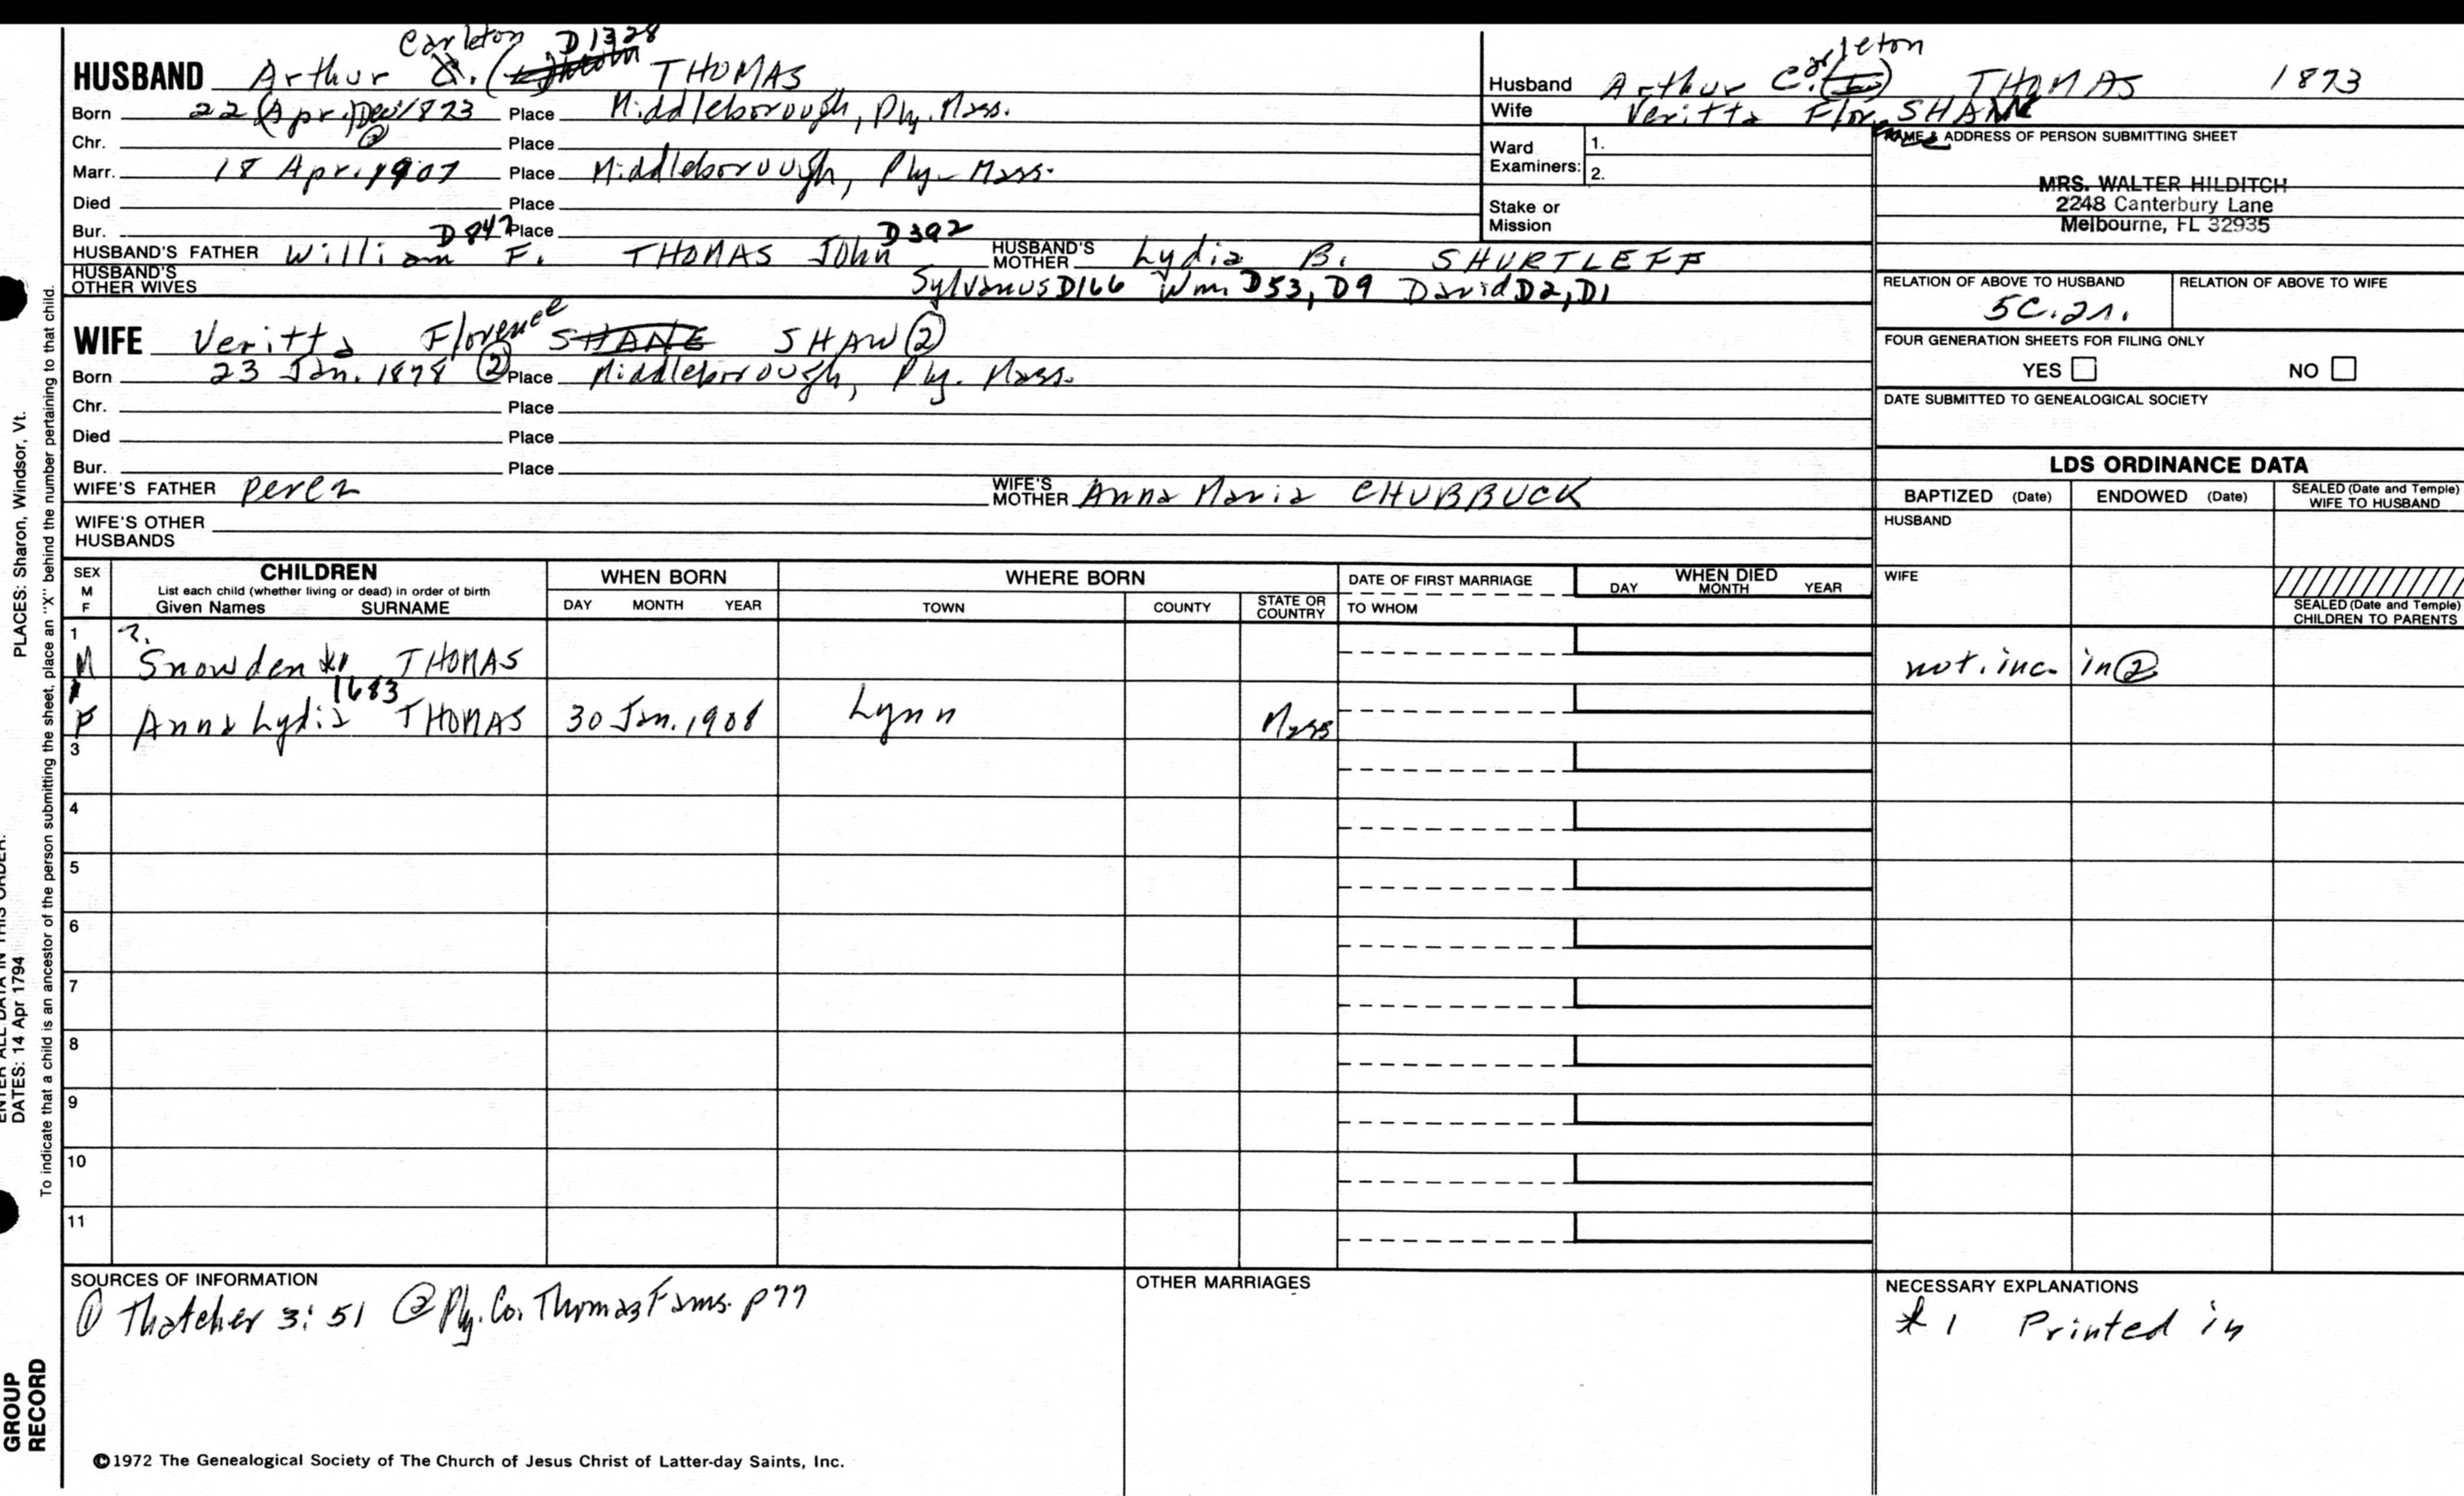 Carleton D1328
HUSBAND Arthur C. ( THOMAS
Born 22 (Apr.) Dec 1873 Place Middleborough, Ply. Mass.
Chr. ② Place
Marr. 18 Apr. 1907 Place Middleborough, Ply. Mass.
Died Place
Bur. Place
D842 D392
HUSBAND'S FATHER William F. THOMAS John HUSBAND'S MOTHER Lydia B. SHURTLEFF
HUSBAND'S OTHER WIVES Sylvanus D166 Wm. D53, D9 David D2, D1
WIFE Veritta Florence SHANE SHAW ②
Born 23 Jan. 1878 ② Place Middleborough, Ply. Mass.
Chr. Place
Died Place
Bur. Place
WIFE'S FATHER Perez WIFE'S MOTHER Anna Maria CHUBBUCK
WIFE'S OTHER HUSBANDS
Husband Arthur C. arleton THOMAS 1873
Wife Veritta Flor. SHAW
Ward Examiners: 1.
2.
Stake or Mission
NAME & ADDRESS OF PERSON SUBMITTING SHEET
MRS. WALTER HILDITCH
2248 Canterbury Lane
Melbourne, FL 32935
RELATION OF ABOVE TO HUSBAND RELATION OF ABOVE TO WIFE
5C.2r.
FOUR GENERATION SHEETS FOR FILING ONLY
YES NO
DATE SUBMITTED TO GENEALOGICAL SOCIETY
LDS ORDINANCE DATA
BAPTIZED (Date) ENDOWED (Date) SEALED (Date and Temple) WIFE TO HUSBAND
HUSBAND
WIFE
SEALED (Date and Temple) CHILDREN TO PARENTS
SEX M F CHILDREN WHEN BORN WHERE BORN DATE OF FIRST MARRIAGE WHEN DIED
List each child (whether living or dead) in order of birth
Given Names SURNAME DAY MONTH YEAR TOWN COUNTY STATE OR COUNTRY TO WHOM DAY MONTH YEAR
1 ?.
M Snowden *1 THOMAS not. inc. in ②
1683
F Anna Lydia THOMAS 30 Jan. 1908 Lynn Mass
3
4
5
6
7
8
9
10
11
SOURCES OF INFORMATION
① Thatcher 3:51 ② Ply. Co. Thomas Fams. p77
OTHER MARRIAGES
NECESSARY EXPLANATIONS
*1 Printed in
©1972 The Genealogical Society of The Church of Jesus Christ of Latter-day Saints, Inc.
PLACES: Sharon, Windsor, Vt.
ENTER ALL DATA IN THIS ORDER:
DATES: 14 Apr 1794
To indicate that a child is an ancestor of the person submitting the sheet, place an "X" behind the number pertaining to that child.
GROUP
RECORD